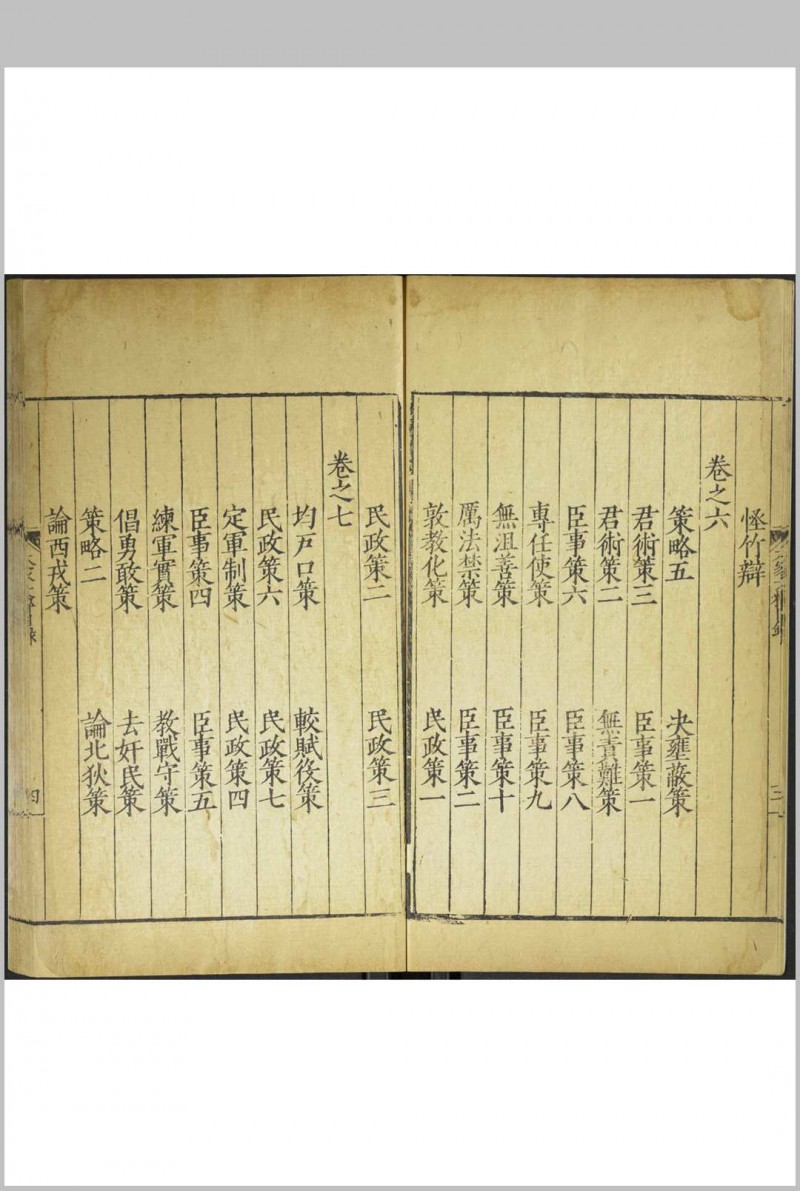 怪竹辯
卷之六
策略五　決壅蔽策
君術策三　臣事策一
君術策二　無責難策
臣事策六　臣事策八
專任使策　臣事策九
無沮善策　臣事策十
厲法禁策　臣事策二
敦教化策　民政策一
民政策二　民政策三
卷之七
均戸口策　較賦役策
民政策六　民政策七
定軍制策　民政策四
臣事策四　臣事策五
練軍實策　教戰守策
倡勇敢策　去奸民策
策略二　論北狄策
論西戎策
三
四